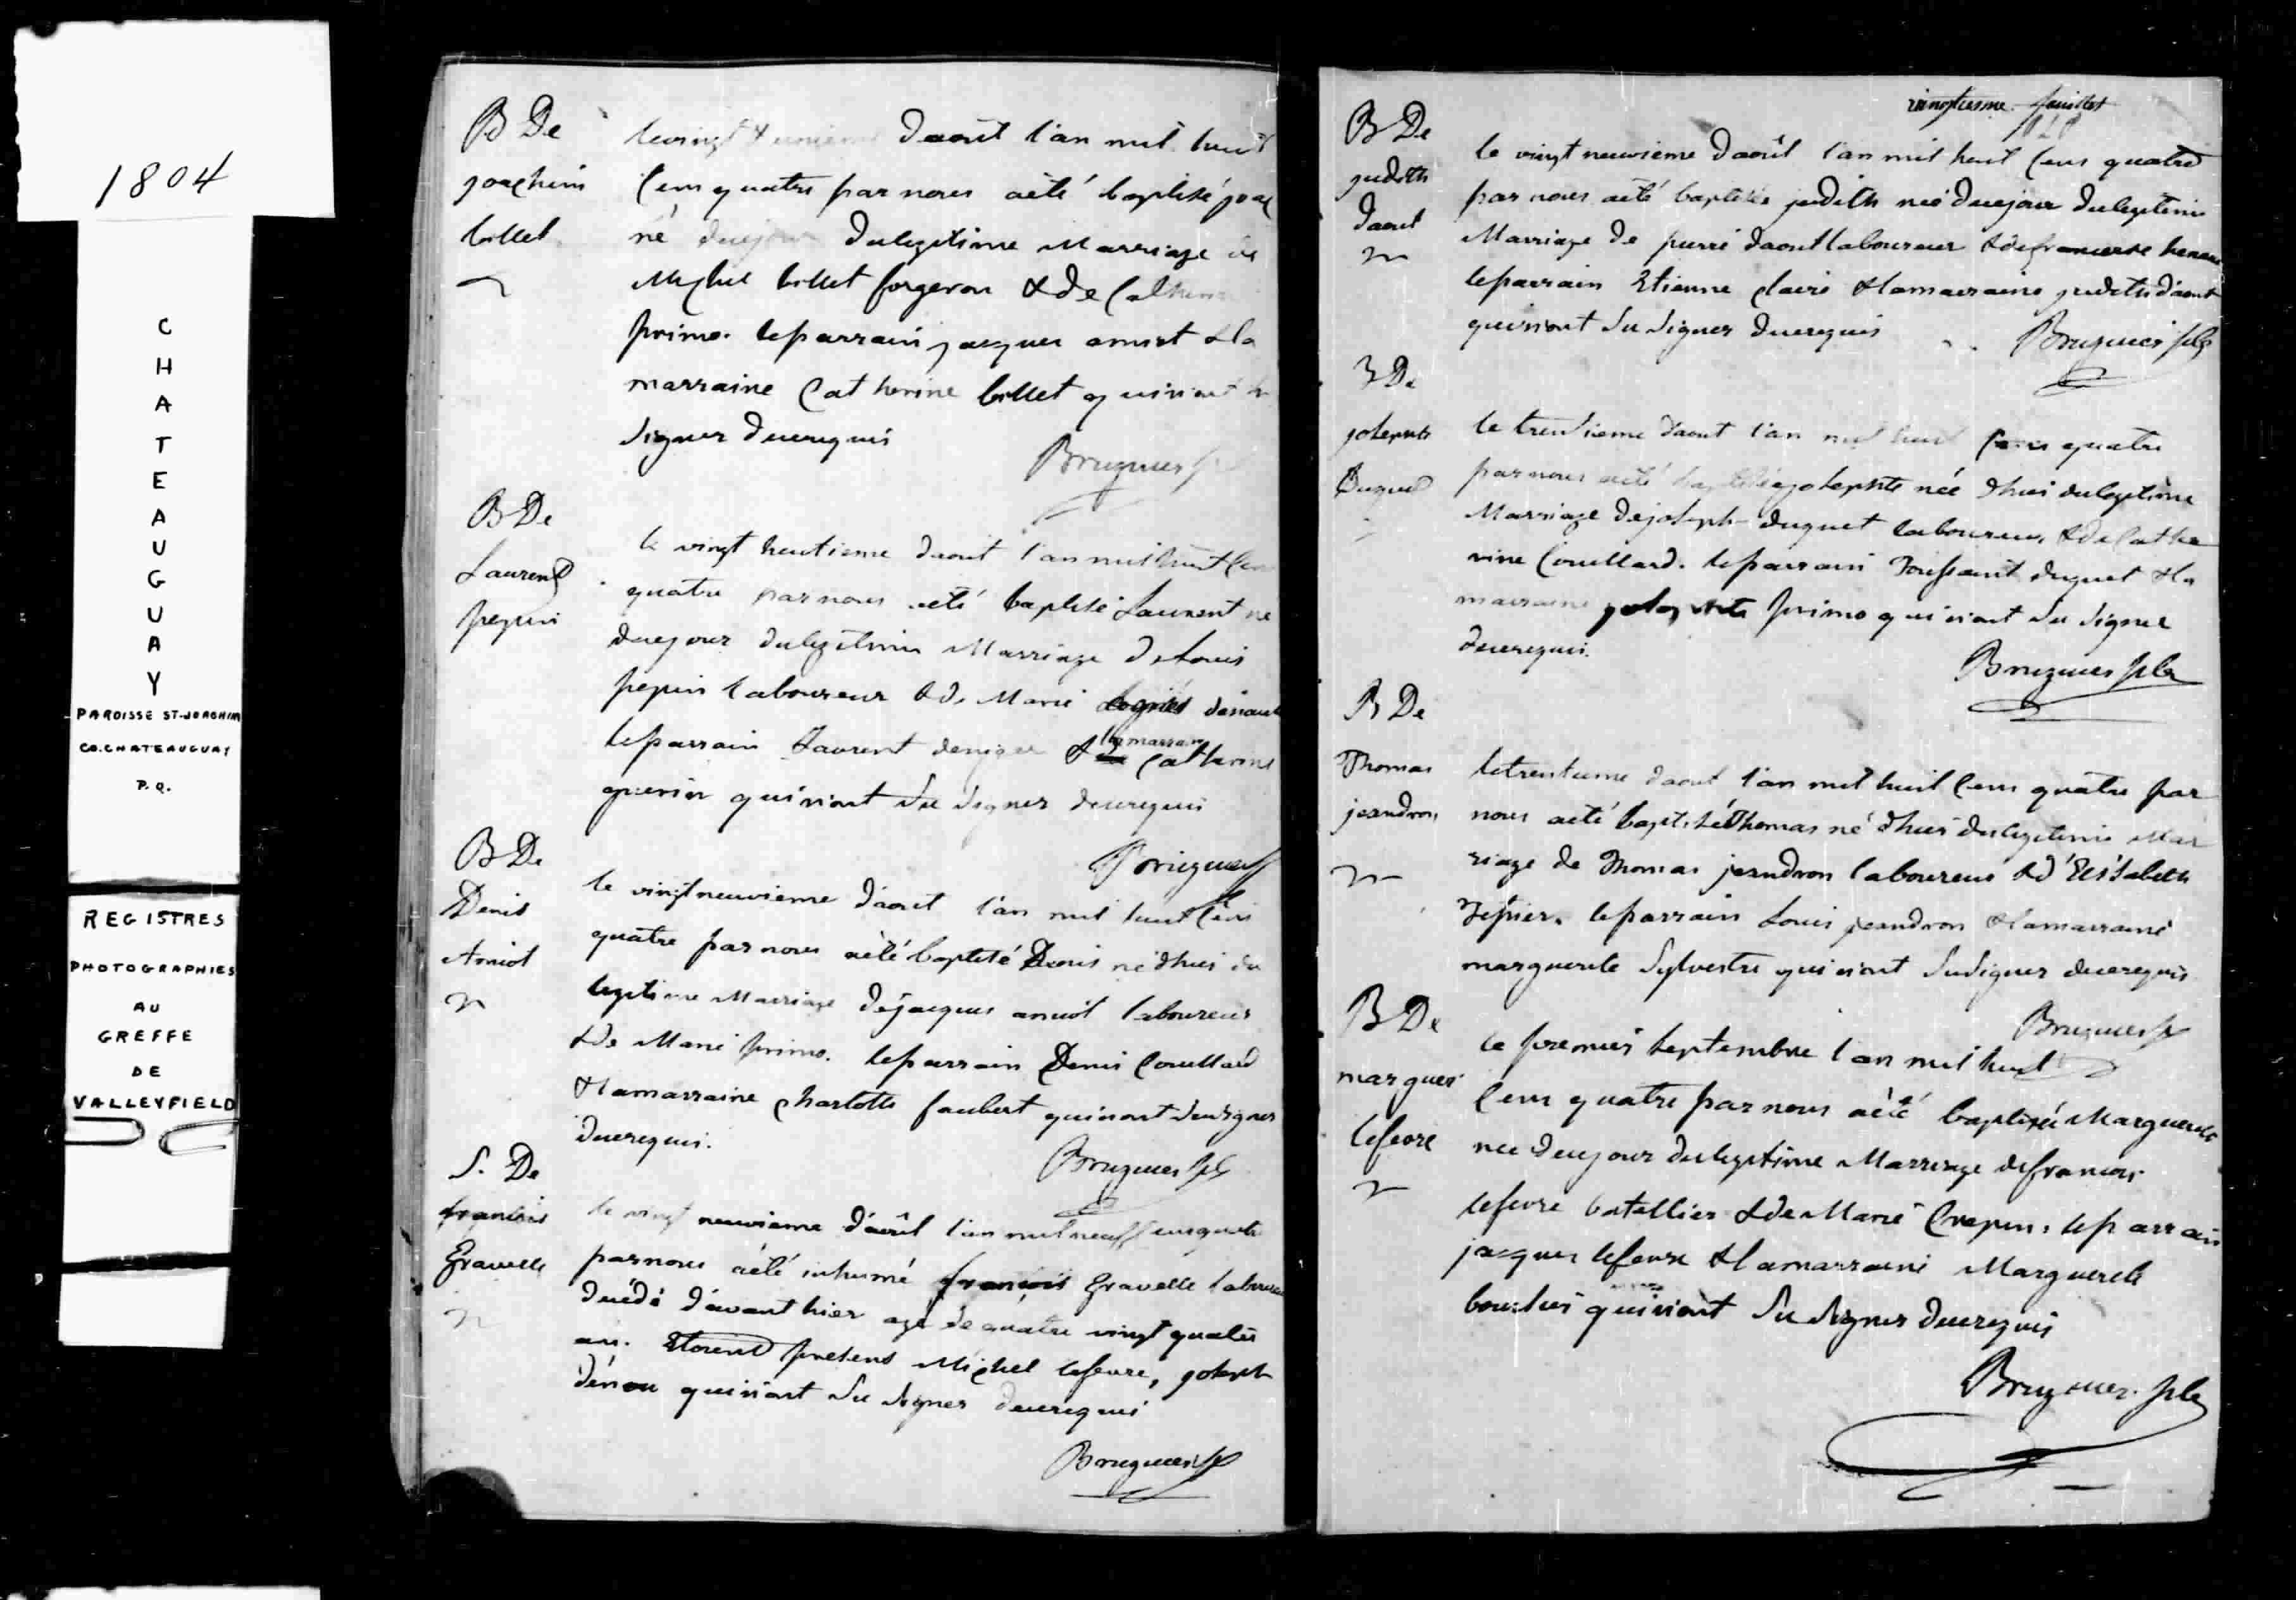 1804
CHATEAUGUAY
PAROISSE ST-JOACHIM
CO. CHATEAUGUAY
P.Q.
REGISTRES
PHOTOGRAPHIES
AU
GREFFE
DE
VALLEYFIELD
B De
joachim
billet
le vingt & unieme daoût l'an mil huit
Cens quatre par nous aèté baptisé joac
né du ce jour du legitime Marriage de
Michel billet forgeron & de Catherine
primo. le parrain jacques amiot & la
marraine Catherine billet qui n'ont su
signer de ce requis
Bruguier
B De
Laurent
pepin
le vingt huitieme daout l'an mil huit Cens
quatre par nous aèté baptisé Laurent né
du ce jour du legitime Marriage de Louis
pepin laboureur & de Marie
le parrain Laurent deniger & la marraine Catherine
guerin qui n'ont su signer de ce requis
Bruguier
B De
Denis
Amiot
le vingt neuvieme d'aout l'an mil huit Cens
quatre par nous aèté baptisé Denis né d'hier du
legitime Marriage de jacques amiot laboureur
& de Marie primo. le parrain Denis Couillard
& la marraine charlotte faubert qui n'ont su signer
de ce requis.
Bruguier ptr
S. De
françois
Gravelle
le vingt neuvieme d'août l'an mil neuf Cens quatre
par nous aèté inhumé françois Gravelle laboureur
décédé d'avant hier agé de quatre vingt quatre
ans. Etoient presens Michel lefevre, joseph
qui n'ont su signer de ce requis
Bruguier
vingtieme feuillet
B De
judith
Daout
le vingt neuvieme d'août l'an mil huit Cens quatre
par nous aèté baptisée judith née du ce jour du legitime
Marriage de pierre daout laboureur & de francoise
le parrain Etienne claire & la marraine judith d'aout
qui n'ont su signer de ce requis
Bruguier ptr
B De
josephte
Duquet
le trentieme d'aout l'an mil huit Cens quatre
par nous aèté baptisée josephte née d'hier du legitime
Marriage de joseph duquet laboureur & de Cathe
rine Couillard. le parrain Toussaint duquet & la
marraine josephte primo qui n'ont su signer
de ce requis.
Bruguier ptr
B De
Thomas
jeandron
le trentieme daout l'an mil huit Cens quatre par
nous aèté baptisé Thomas né d'hier du legitime Mar
riage de Thomas jeandron laboureur & d'Elisabeth
Tessier. le parrain Louis jeandron & la marraine
marguerite Sylvestre qui n'ont su signer de ce requis
Bruguier
B De
marguer
lefevre
le premier septembre l'an mil huit
Cens quatre par nous aèté baptisée Marguerite
née du ce jour du legitime Marriage de francois
lefevre batellier & de Marie Crepin. le parrain
jacques lefevre & la marraine Marguerite
qui n'ont su signer de ce requis
Bruguier ptr